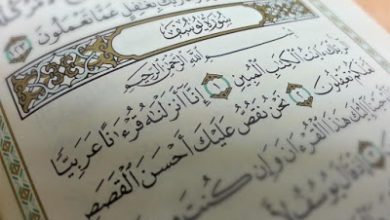 بِغَٰفِلٍ عَمَّا تَعْمَلُونَ ١٢٣
سُورَةُ يُوسُفَ
بِسْمِ اللَّهِ الرَّحْمَٰنِ الرَّحِيمِ
ءَايَٰتُ الْكِتَٰبِ الْمُبِينِ ١ إِنَّا أَنزَلْنَٰهُ قُرْءَٰنًا عَرَبِيًّا
لَّعَلَّكُمْ تَعْقِلُونَ ٢ نَحْنُ نَقُصُّ عَلَيْكَ أَحْسَنَ الْقَصَصِ
إِلَيْكَ هَٰذَا الْقُرْءَانَ وَإِن كُنتَ
قَالَ يُوسُفُ